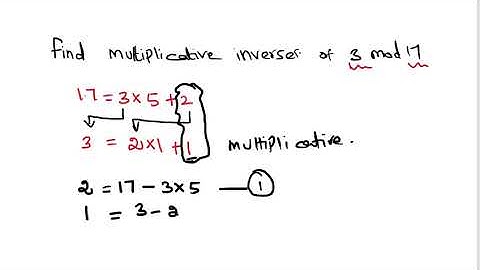 find multiplicative inverses of 3 mod 17
17 = 3 × 5 + 2
3 = 2 × 1 + 1 multiplicative.
2 = 17 - 3 × 5 — 1
1 = 3 - 2